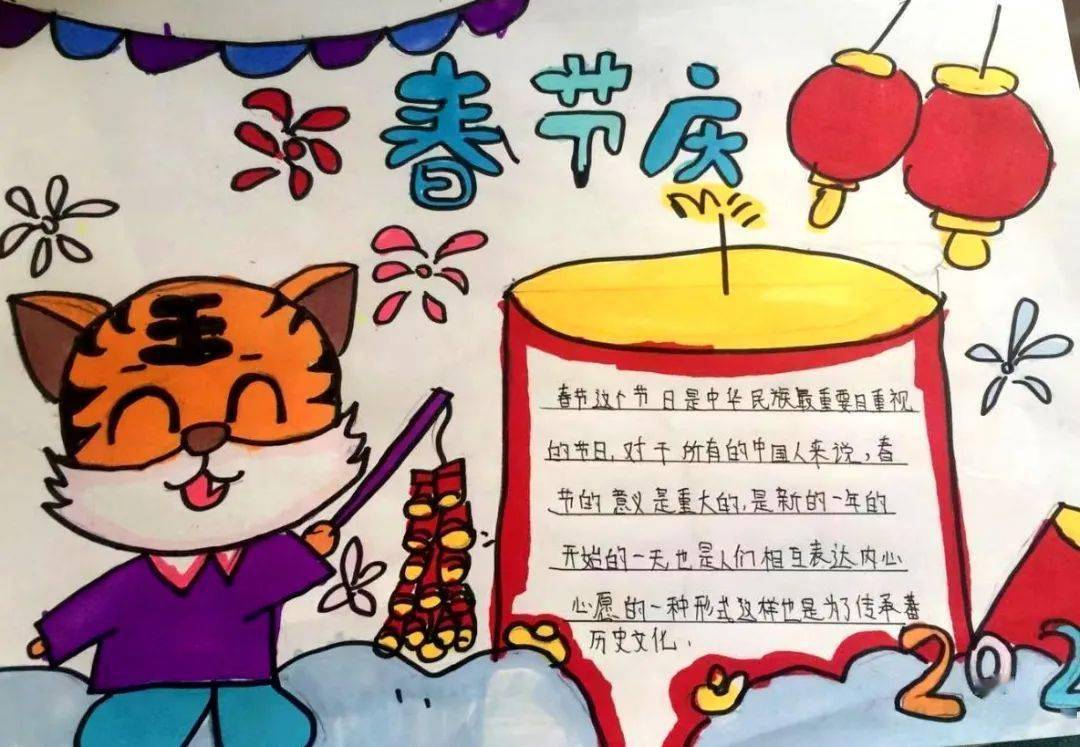 春节庆
王
春节这个节日是中华民族最重要目重视
的节日,对于所有的中国人来说,春
节的意义是重大的,是新的一年的
开始的一天,也是人们相互表达内心
心愿的一种形式这样也是为了传承着
历史文化.
202